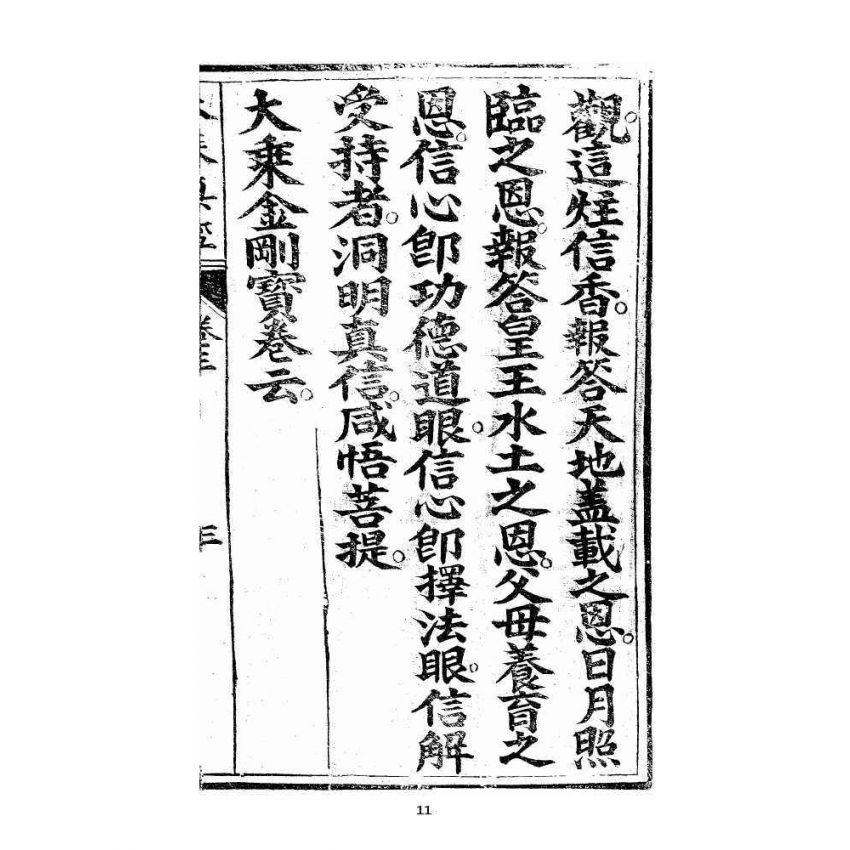 觀。這炷信香。報答天地盖載之恩。日月照
臨之恩。報答皇王水土之恩。父母養育之
恩。信心卽功德道眼。信心卽擇法眼。信解
受持者。洞明真信。咸悟菩提。
大乘金剛寶卷云。
卷三
三
11